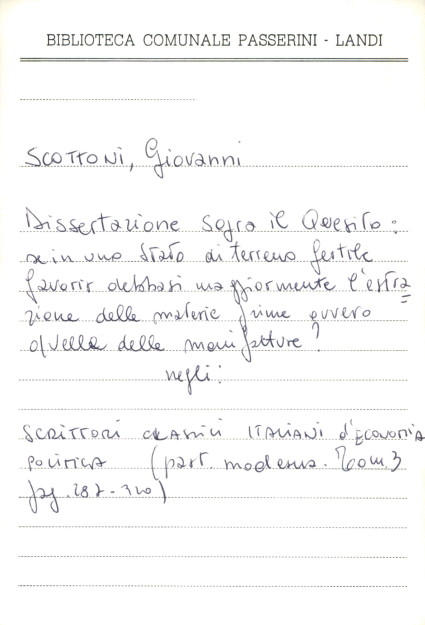 BIBLIOTECA COMUNALE PASSERINI - LANDI
SCOTTONI, Giovanni
Dissertazione sopra il Quesito:
se in uno Stato di terreno fertile
favorir debbasi maggiormente l'estra
zione delle materie prime ovvero
quella delle manifatture?
negli:
SCRITTORI CLASSICI ITALIANI d'Economia
POLITICA (part. moderna. Tom. 3
pag. 287 - 320)